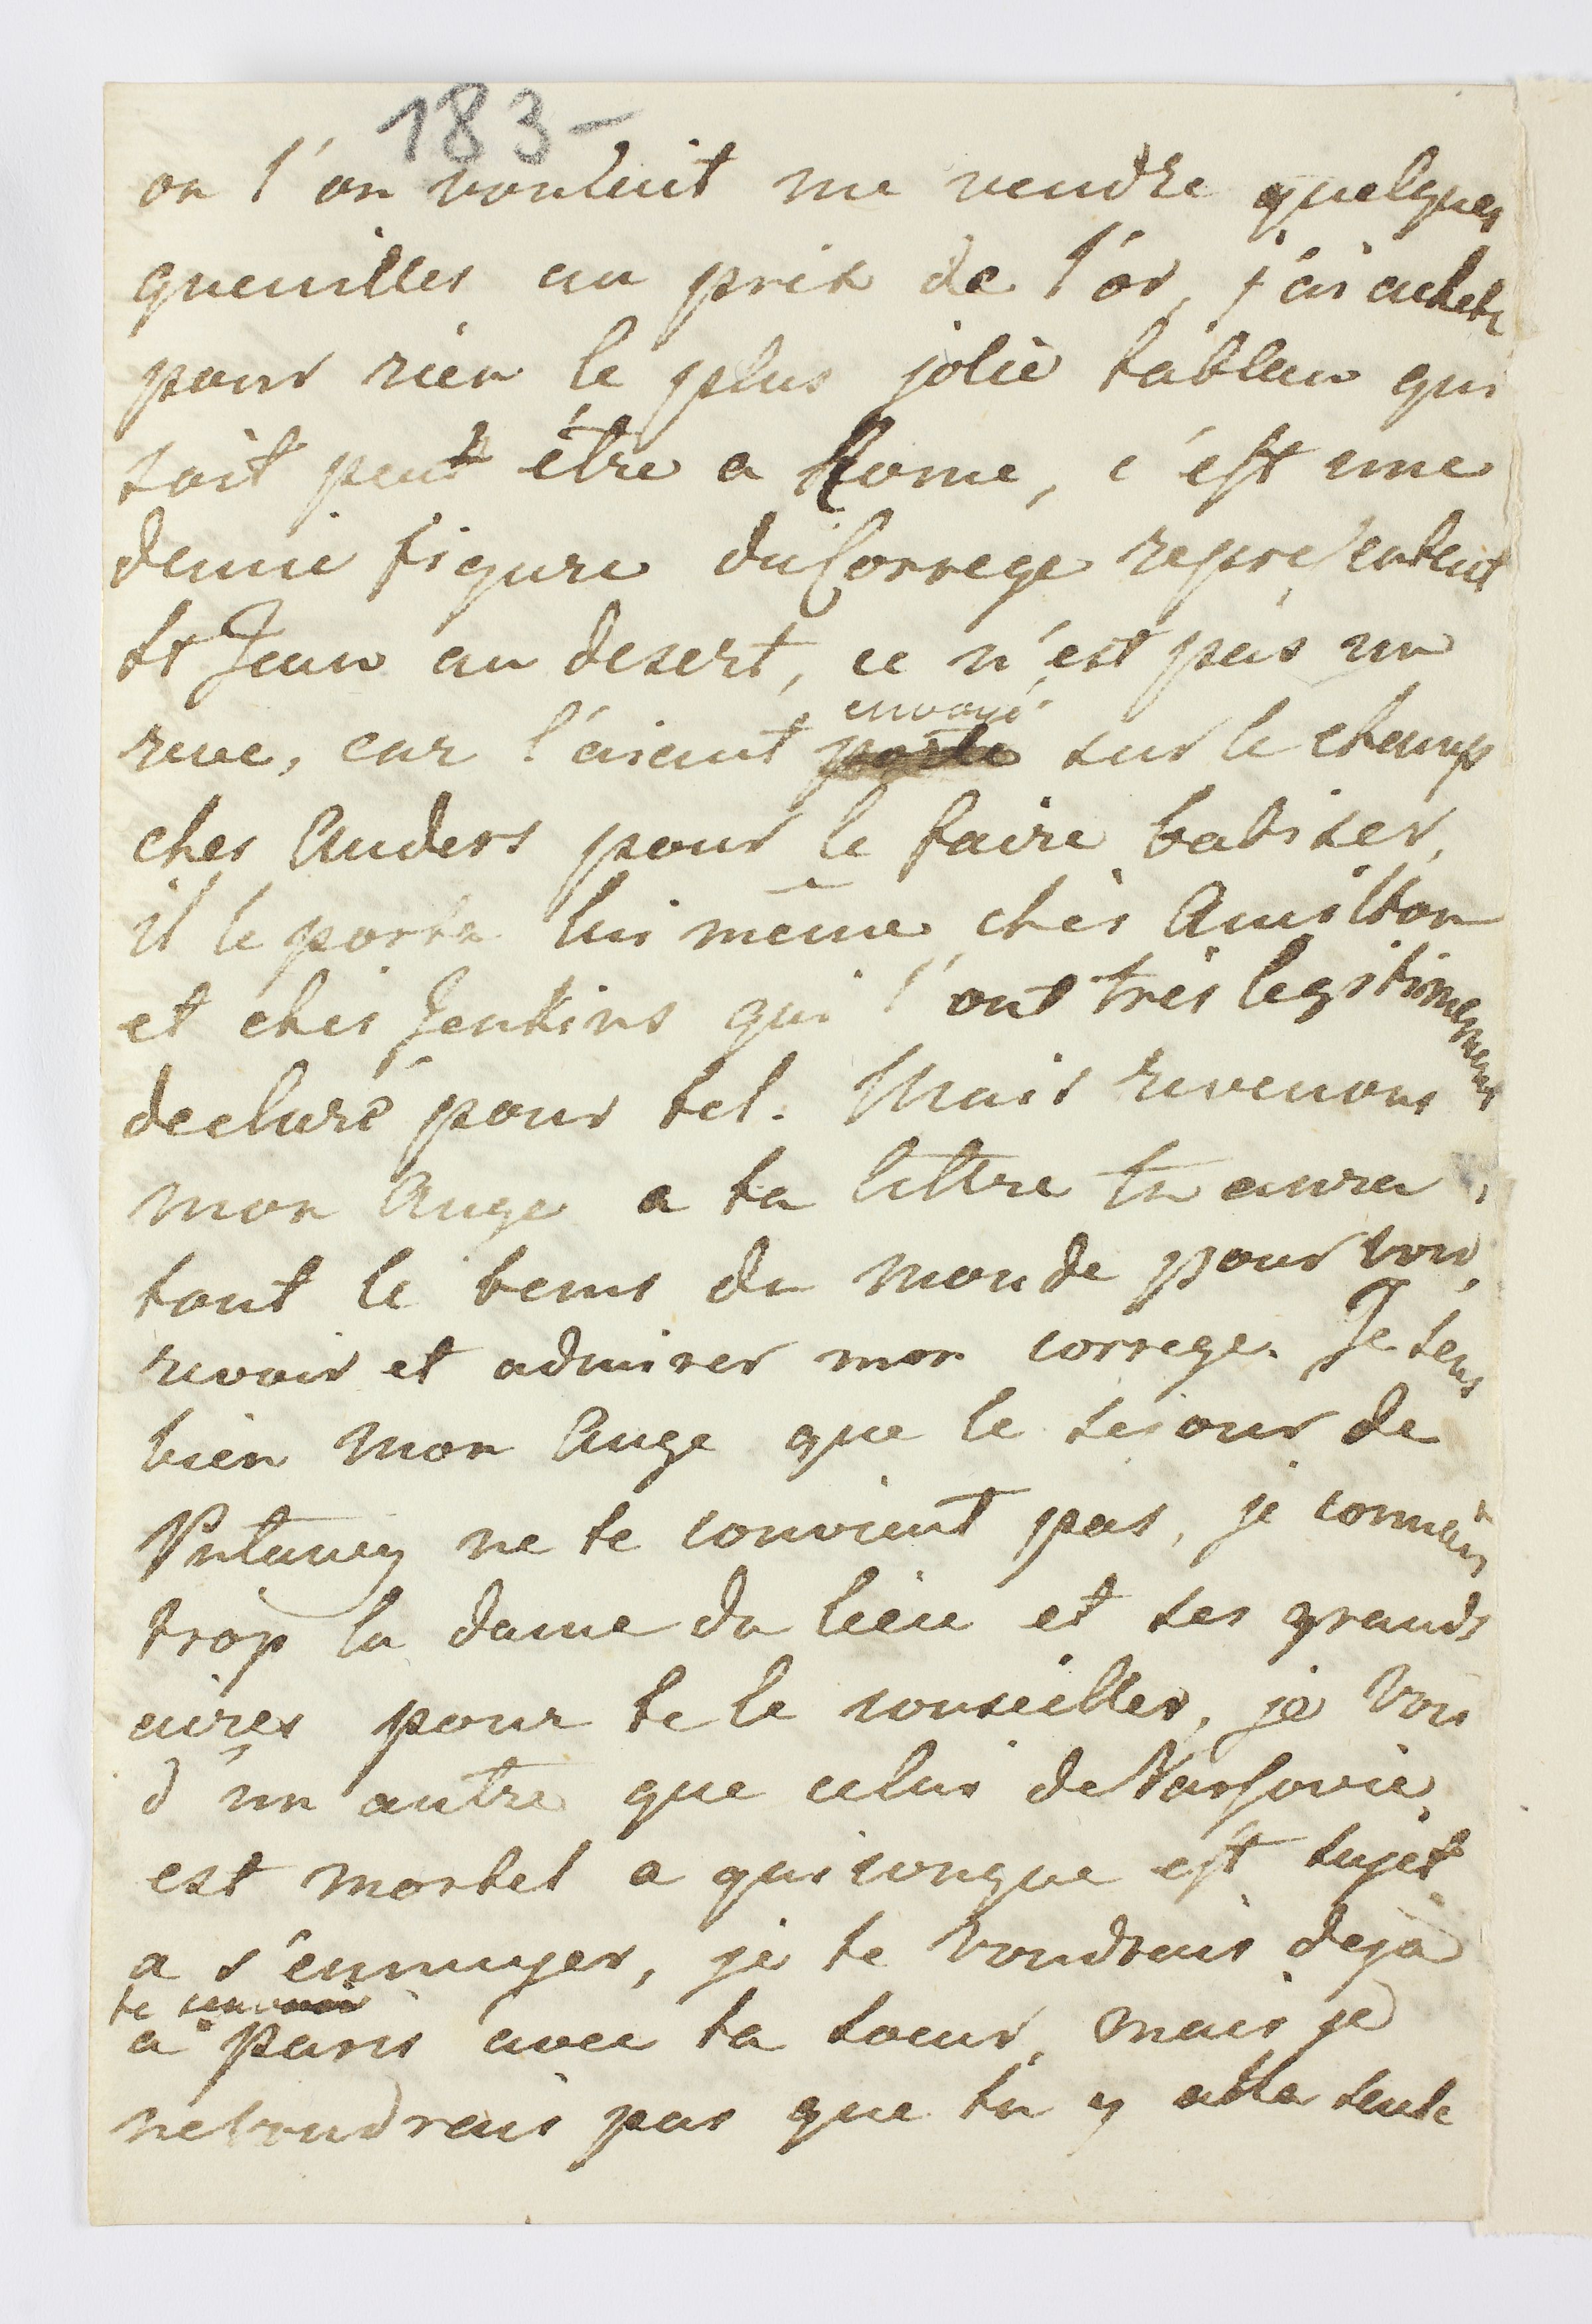 183-
ou l'on vouluit me vendre quelques
quenilles au prix de l'or, j'ai acheté
pour rien le plus jolie tableau qui
soit peut être a Rome, c'est une
demie figure du Correge representent
St Jean au desert, ce n'est pas un
reve, car l'aiant envoyé porté sur le champ
ches Anders pour le faire batiser,
il le porta lui même chés Amilton
et chés Jenkins qui l'ont très legitimement
declaré pour tel. Mais revenons
mon Ange a ta lettre tu auras
tout le tems du monde pour voir,
revoir et admirer mon correge. Je sens
bien mon Ange que le sejour de
ne te convient pas, je connais
trop la dame du lieu et ses grands
aires pour te le conseiller, je vois
d'un autre que celui de Varsovie
est mortel a quiconque est sujet
a s'ennuyer, je te voudrais deja
te
a Paris avec ta soeur, mais je
ne voudrais pas que tu y alla seule